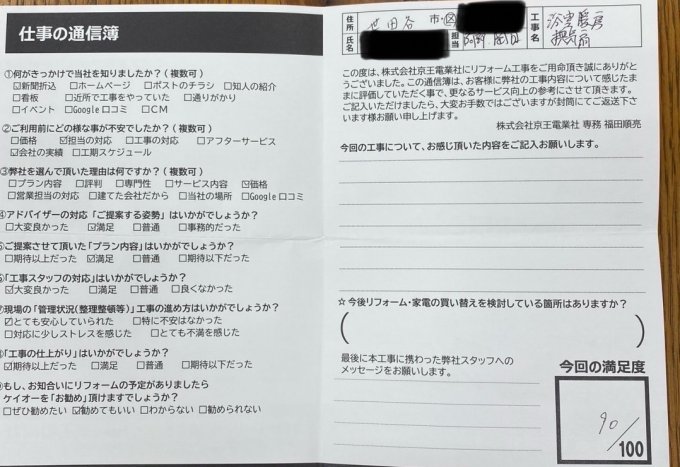 仕事の通信簿
①何がきっかけで当社を知りましたか？(複数可)
☑新聞折込 □ホームページ □ポストのチラシ □知人の紹介
□看板 □近所で工事をやっていた □通りがかり
□イベント □Google口コミ □CM
②ご利用前にどの様な事が不安でしたか？(複数可)
□価格 ☑担当の対応 □工事の対応 □アフターサービス
☑会社の実績 □工期スケジュール
③弊社を選んで頂いた理由は何ですか？(複数可)
□プラン内容 □評判 □専門性 □サービス内容 ☑価格
□営業担当の対応 □建てた会社だから □当社の場所 □Google口コミ
④アドバイザーの対応「ご提案する姿勢」はいかがでしょうか？
□大変良かった ☑満足 □普通 □事務的だった
ご提案させて頂いた「プラン内容」はいかがでしょうか？
□期待以上だった ☑満足 □普通 □期待以下だった
「工事スタッフの対応」はいかがでしょうか？
☑大変良かった □満足 □普通 □良くなかった
⑦現場の「管理状況(整理整頓等)」工事の進め方はいかがでしょうか？
☑とても安心していられた □特に不安はなかった
□対応に少しストレスを感じた □とても不満を感じた
「工事の仕上がり」はいかがでしょうか？
☑期待以上だった □満足 □普通 □期待以下だった
もし、お知合いにリフォームの予定がありましたら
ケイオーを「お勧め」頂けますでしょうか？
□ぜひ勧めたい ☑勧めてもいい □わからない □勧められない
住所 世田谷 市・区
氏名 担当
工事名 浴室暖房
換気扇
この度は、株式会社京王電業社にリフォーム工事をご用命頂き誠にありがとうございました。この通信簿は、お客様に弊社の工事内容について感じたままに評価していただく事で、更なるサービス向上の参考にさせて頂きます。
ご記入いただけましたら、大変お手数ではございますが封筒にてご返送下さいます様お願い申し上げます。
株式会社京王電業社 専務 福田順亮
今回の工事について、お感じ頂いた内容をご記入お願いします。
☆今後リフォーム・家電の買い替えを検討している箇所はありますか？
( )
最後に本工事に携わった弊社スタッフへの
メッセージをお願いします。
今回の満足度
90
/100